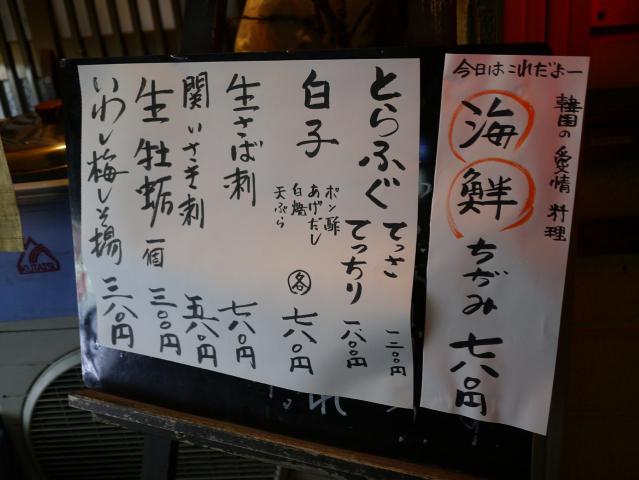 今日はこれだよー
韓国の愛情料理
海鮮ちぢみ 七八〇円
とらふぐ てっさ 一二〇〇円
てっちり 一八〇〇円
白子 ポン酢 あげだし 白焼 天ぷら 各 七八〇円
生さば刺 七八〇円
関いさき刺 五八〇円
生牡蛎 一個 三〇〇円
いわし梅しそ揚 三八〇円